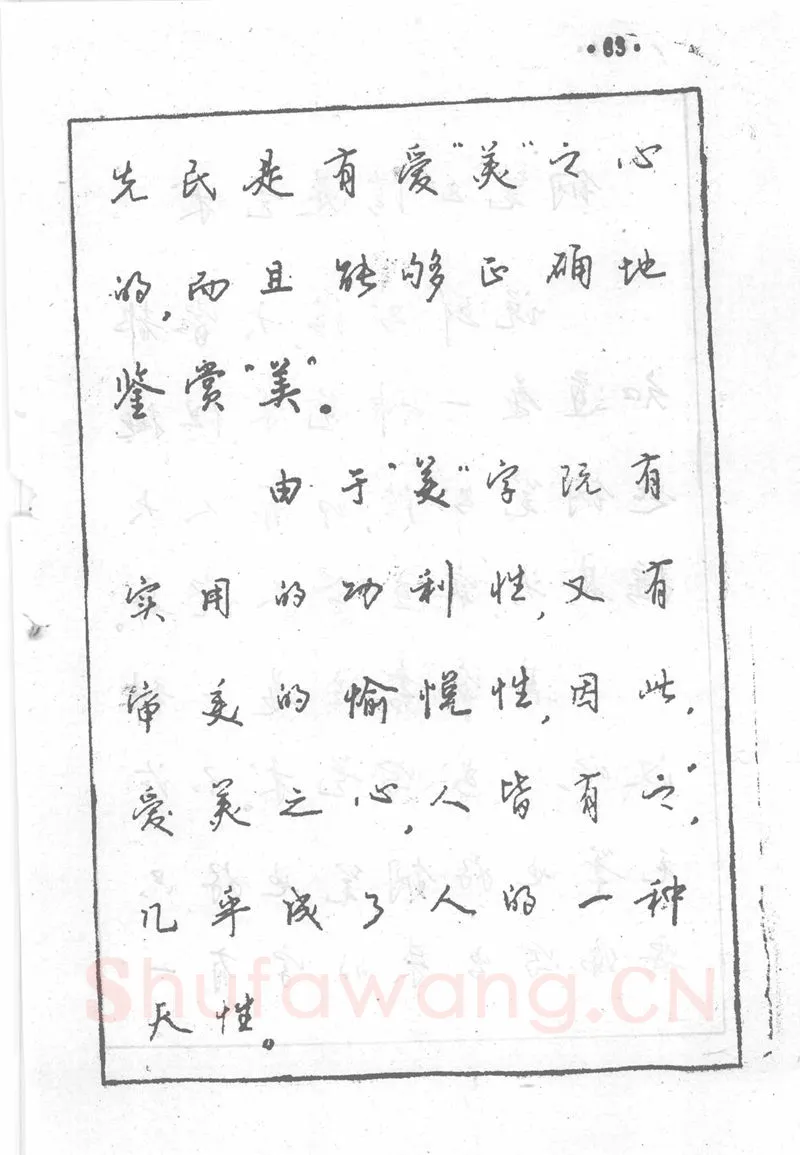 ·63·
先民是有爱"美"之心
的，而且能够正确地
鉴赏"美"。
由于"美"字既有
实用的功利性，又有
审美的愉悦性，因此，
爱美之心，人皆有之"，
几乎成了人的一种
天性。
Shufawang.CN